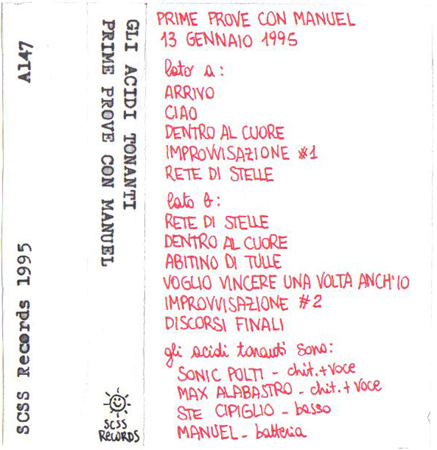 SCSS Records 1995
A147
GLI ACIDI TONANTI
PRIME PROVE CON MANUEL
SCSS
RECORDS
PRIME PROVE CON MANUEL
13 GENNAIO 1995
lato a:
ARRIVO
CIAO
DENTRO AL CUORE
IMPROVVISAZIONE #1
RETE DI STELLE
lato b:
RETE DI STELLE
DENTRO AL CUORE
ABITINO DI TULLE
VOGLIO VINCERE UNA VOLTA ANCH'IO
IMPROVVISAZIONE #2
DISCORSI FINALI
gli acidi tonanti sono:
SONIC POLTI - chit.+voce
MAX ALABASTRO - chit.+voce
STE CIPIGLIO - basso
MANUEL - batteria